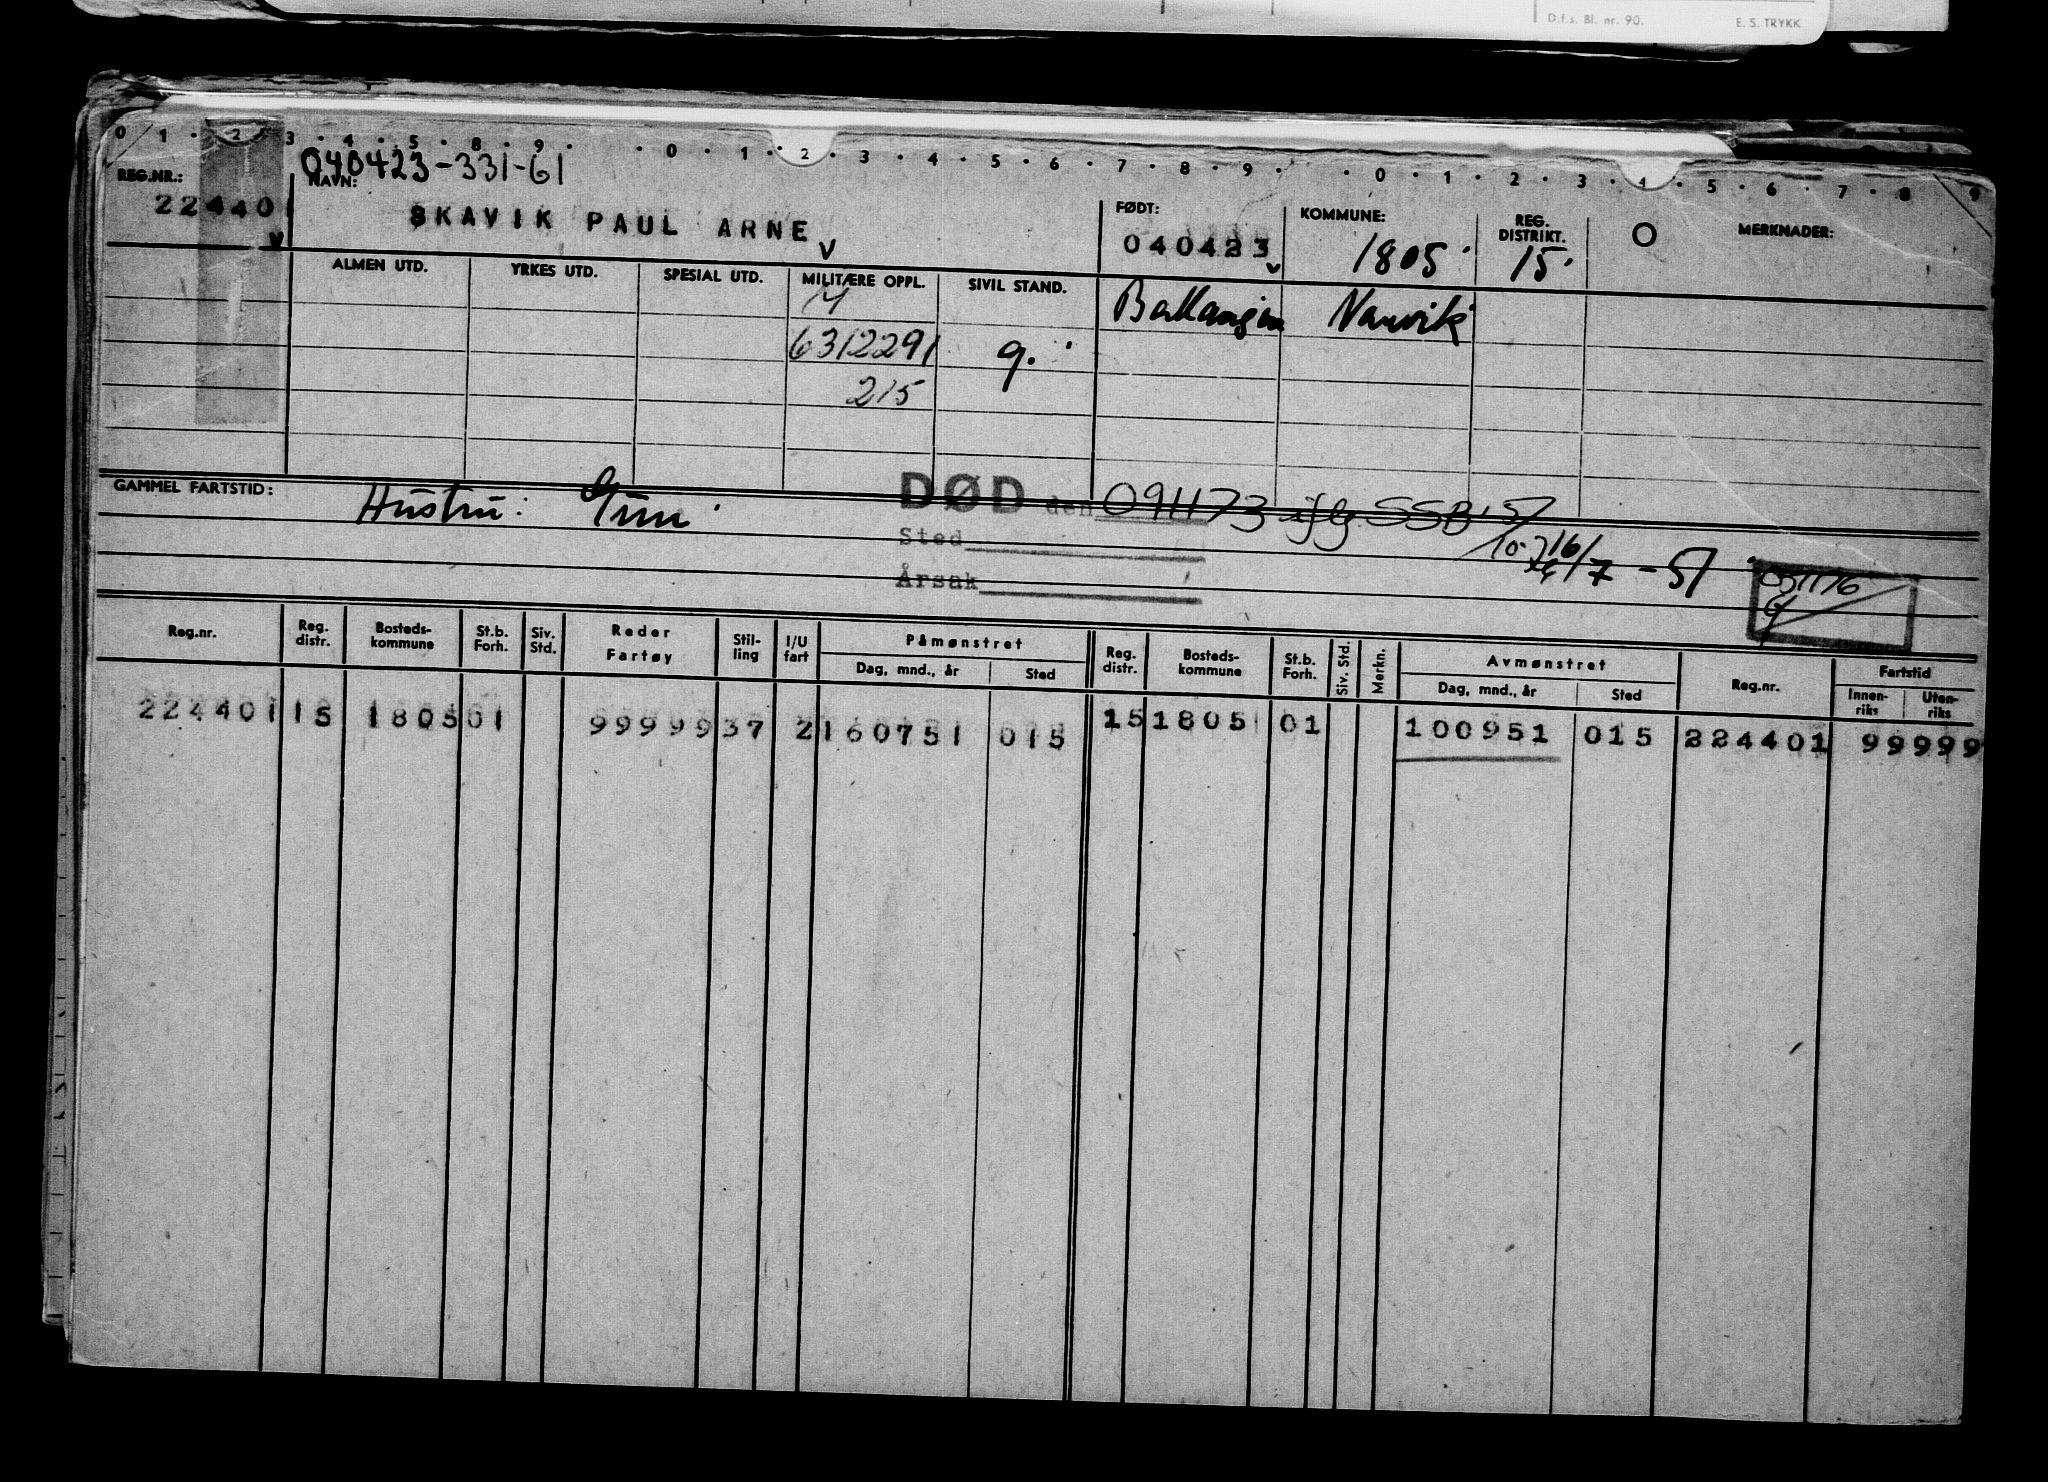 D.f.s. Bl. nr. 90. E. S. TRYKK
0 1 2 3 4 5 8 9 0 1 2 3 4 5 6 7 8 9 0 1 2 3 4 5 6 7 8 9
040423-331-61
REG.NR.: NAVN: FØDT: KOMMUNE: REG. DISTRIKT. O MERKNADER:
224401 SKAVIK PAUL ARNE 040423 1805 15
ALMEN UTD. YRKES UTD. SPESIAL UTD. MILITÆRE OPPL. SIVIL STAND.
M Ballangen Narvik
6312291 g.
215
GAMMEL FARTSTID: Hustru: DØD den 091173 iflg SSB
Sted
16/7 -51
Årsak
Reg.nr. Reg. distr. Bosteds-kommune St.b. Forh. Siv. Std. Reder Fartøy Stil-ling I/U fart Påmønstret Reg. distr. Bosteds-kommune St.b. Forh. Siv. Std. Merkn. Avmønstret Reg.nr. Fartstid
Dag, mnd., år Sted Dag, mnd., år Sted Innen-riks Uten-riks
224401 15 1805 01 99999 37 2 160751 015 15 1805 01 100951 015 224401 99999